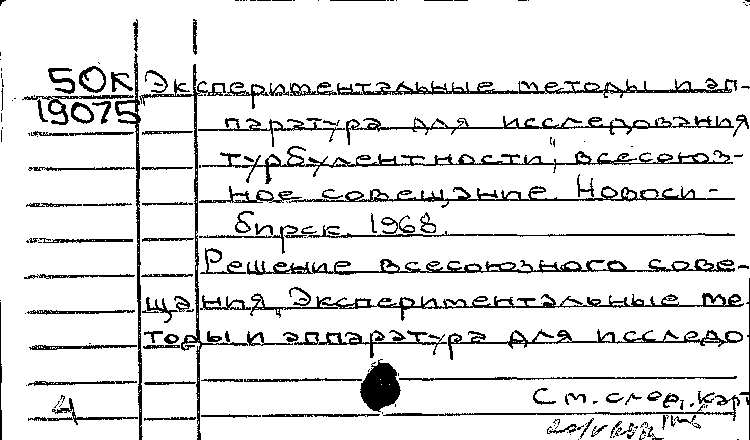 50К Экспериментальные методы и ап-
19075 паратура для исследования
турбулентности", всесоюз-
ное совещание. Новоси-
бирск. 1968.
Решение всесоюзного сове-
щания „Экспериментальные ме-
тоды и аппаратура для исследо
См. след. карт
4